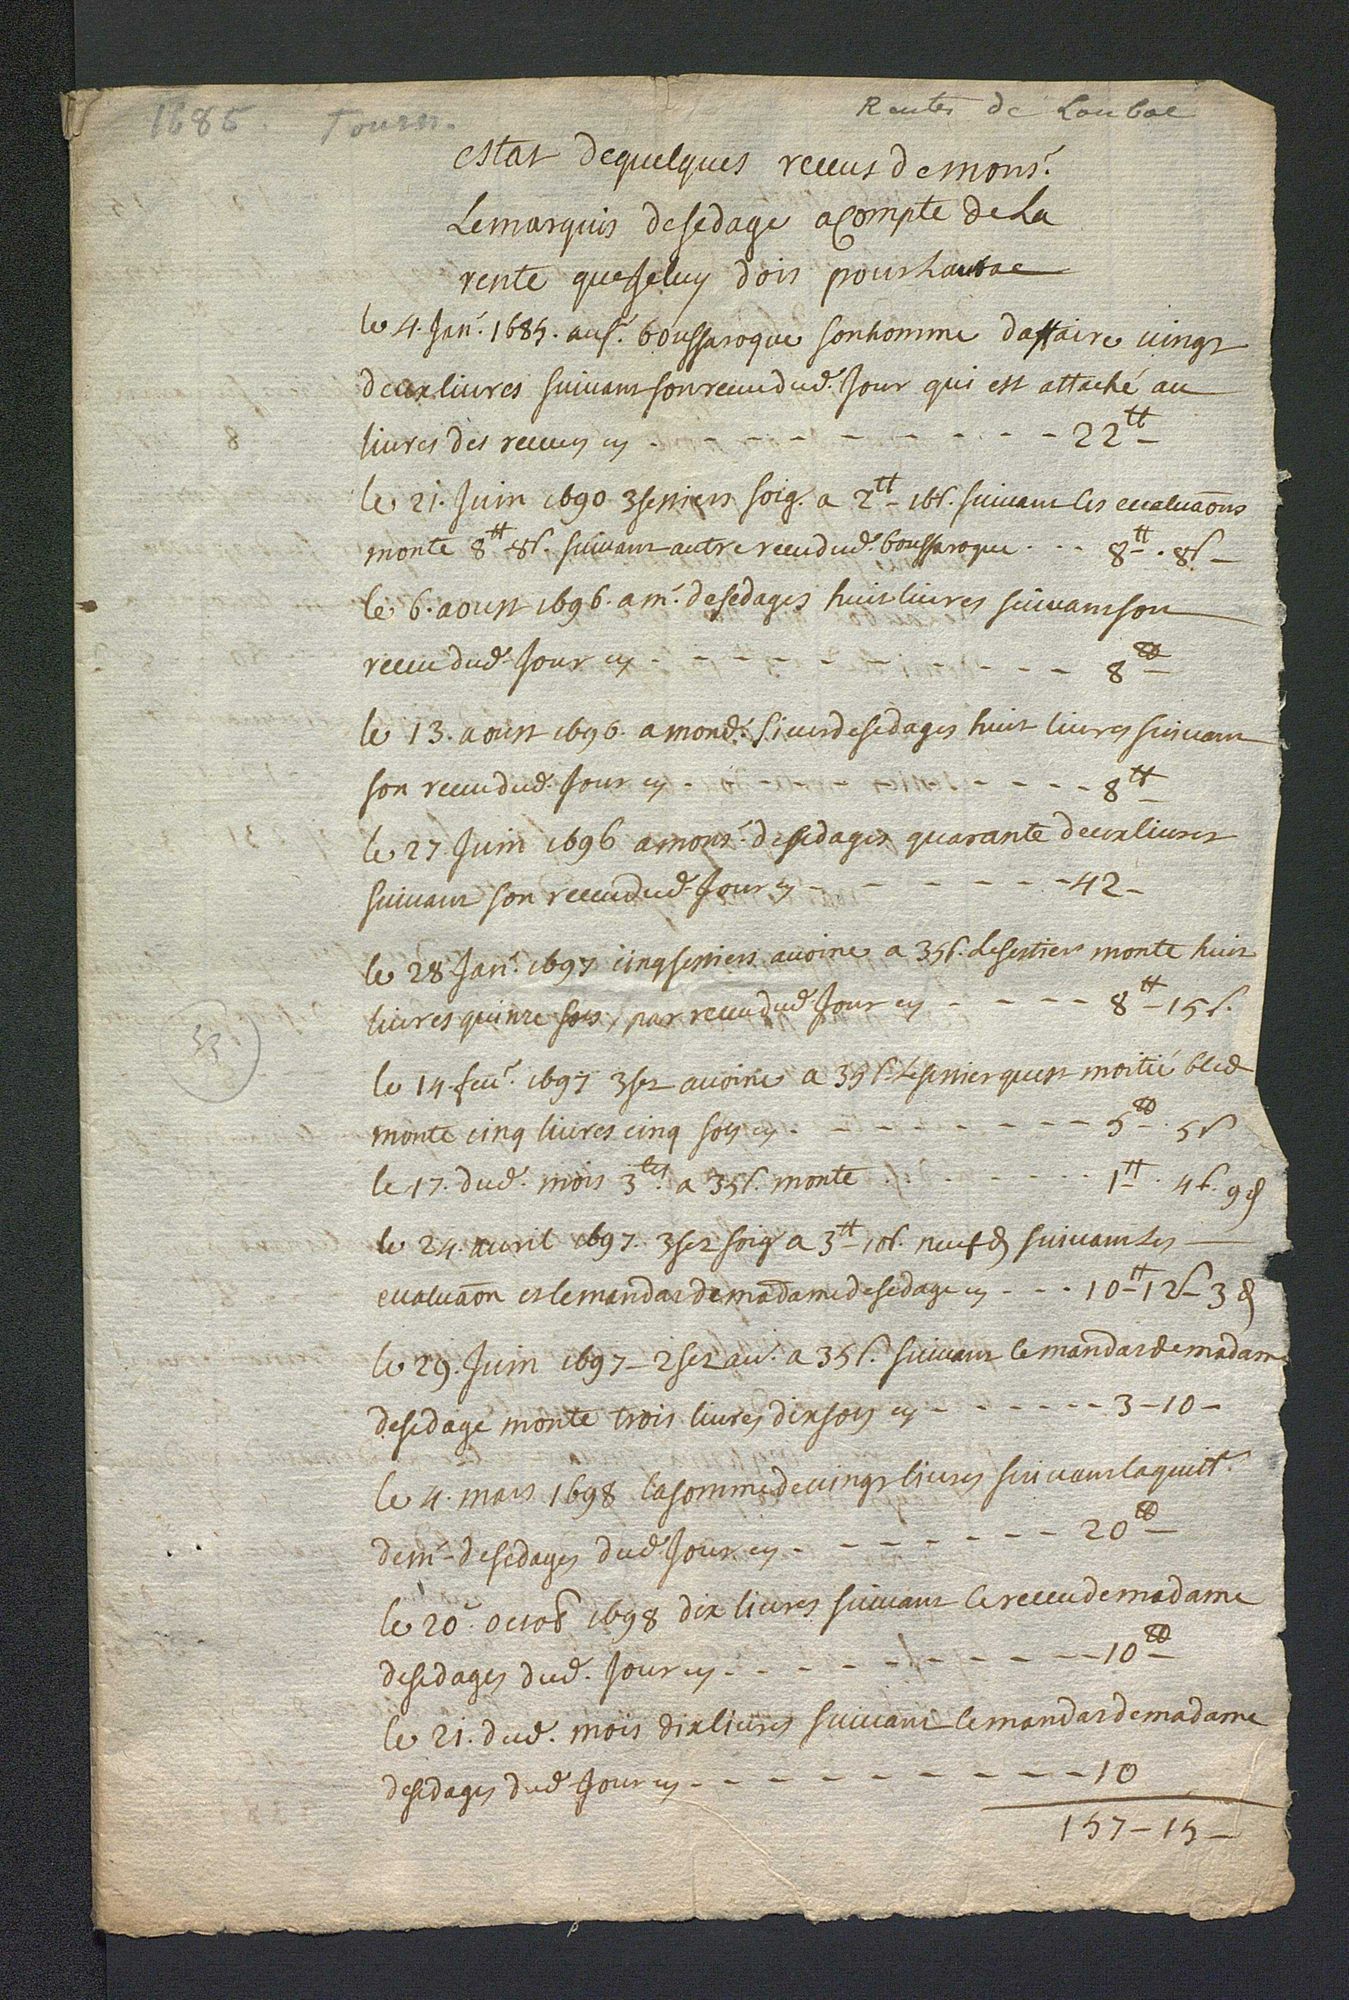 1685. Tourn.
Rentes de Laubac
estat de quelques receus de monsr.
Le marquis de sedage a Compte de La
rente que Je luy dois pour Laubac
le 4. Janr. 1685. au sr. boussaroque son homme daffaire vingt
deux livres suivant son receu dud. Jour qui est attaché au
livres des receus cy - - - - - - - - - - 22tt
le 21. Juin 1690 3 sestiers soig. a 2tt 16s. suivant les evaluaons
monte 8tt 8s. suivant autre receu dud. boussaroque - - - 8tt. 8s
le 6. aoust 1696. a mr. de sedages huit livres suivant son
receu dud. Jour cy - - - - - - - - - - 8tt
le 13. aoust 1696. a mond. sieur de sedages huit livres suivant
son receu dud. Jour cy - - - - - - - - - 8tt
le 27 Juin 1696 a monsr. de sedages quarante deux livres
suivant son receu dud. Jour cy - - - - - - - 42 -
le 28 Janr. 1697 cinq sestiers avoine a 35s. le sestier monte huit
livres quinze sols, par receu dud. Jour cy - - - - - 8tt 15s.
33
le 14. fevr. 1697 3 sez avoine a 35s. le sestier quest moitié bled
monte cinq livres cinq sols cy - - - - - - - - 5tt. 5s
le 17. dud. mois 3 a 35s. monte - - - - - - 1tt. 4s. 9d
le 24. avril 1697. 3 sez soig a 3tt 10s. neuf d suivant les
evaluaon et le mandat de madame de sedage cy - - - 10tt 12s 3d
le 29. Juin 1697 - 2 sez av. a 35s. suivant le mandat de madame
de sedage monte trois livres dix sols cy - - - - - - 3 - 10 -
le 4. mars 1698 la somme de vingt livres suivant la quitt.
de mr. de sedages dud. Jour cy - - - - - - - 20tt
le 20. octob 1698 dix livres suivant le receu de madame
de sedages dud. Jour cy - - - - - - - - - 10tt
le 21. dud. mois dix livres suivant le mandat de madame
de sedages dud. Jour cy - - - - - - - - - 10
157 - 15 -